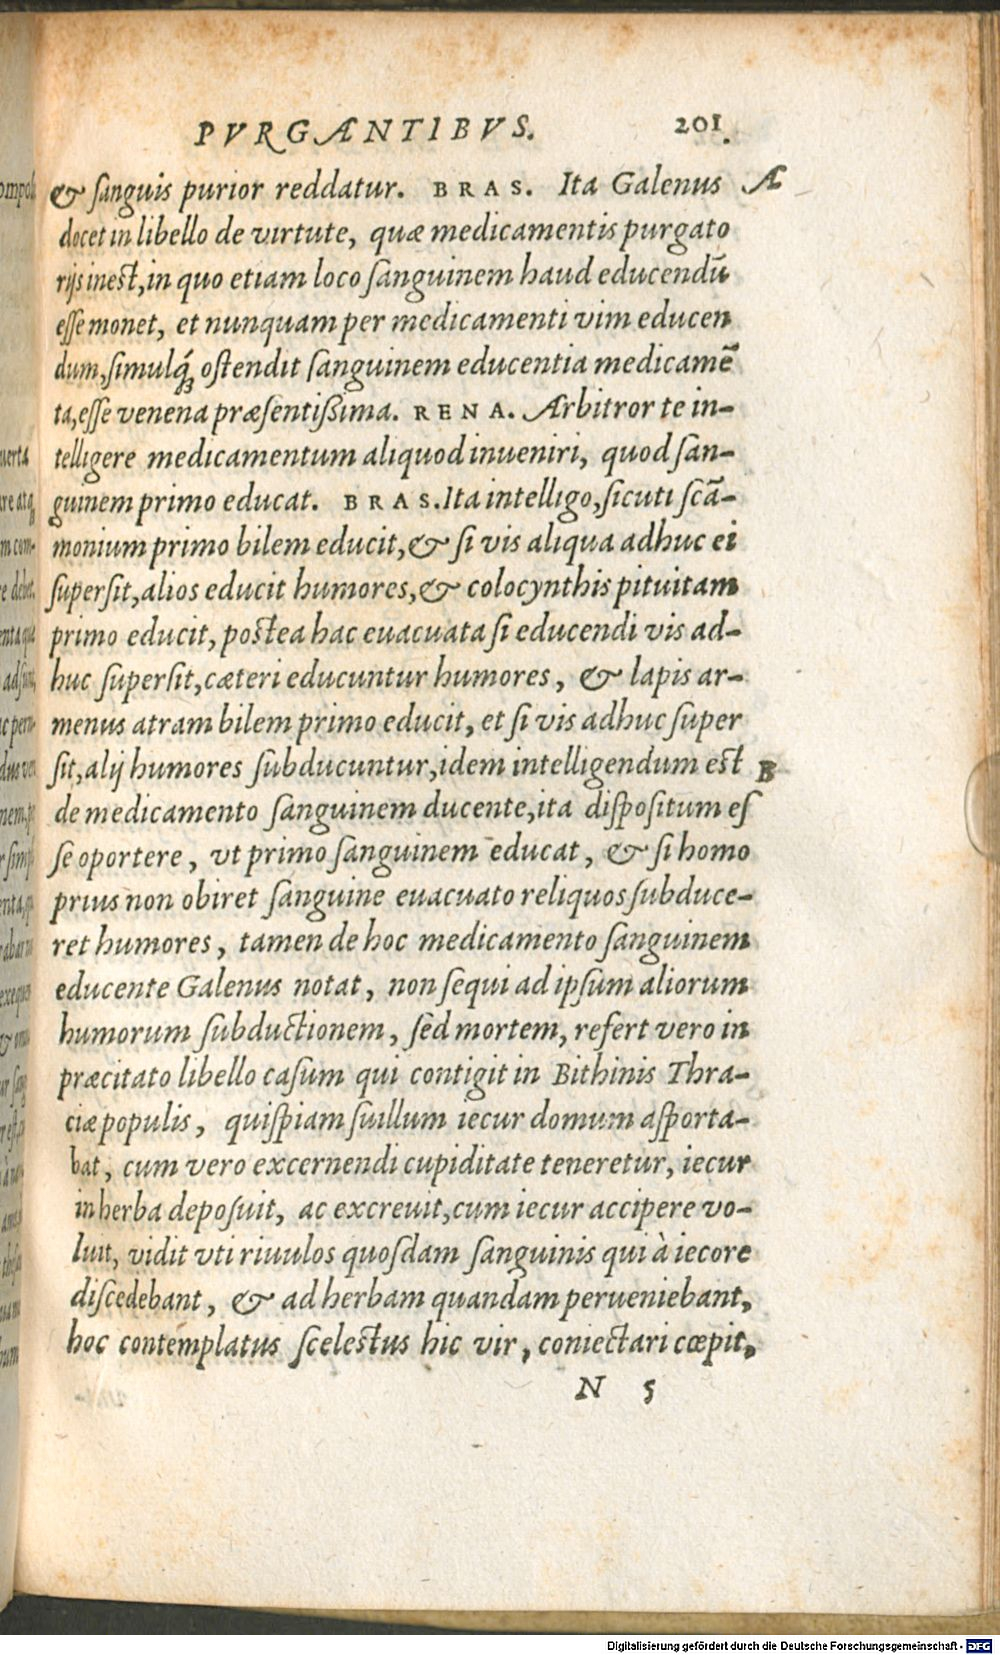 PVRGANTIBVS. 201.
& sanguis purior reddatur. BRAS. Ita Galenus A
docet in libello de virtute, quæ medicamentis purgato
rijs inest, in quo etiam loco sanguinem haud educendū
esse monet, et nunquam per medicamenti vim educen
dum, simulq́; ostendit sanguinem educentia medicamē
ta, esse venena præsentißima. RENA. Arbitror te in-
telligere medicamentum aliquod inueniri, quod san-
guinem primo educat. BRAS. Ita intelligo, sicuti scā-
monium primo bilem educit, & si vis aliqua adhuc ei
supersit, alios educit humores, & colocynthis pituitam
primo educit, postea hac euacuata si educendi vis ad-
huc supersit, cæteri educuntur humores, & lapis ar-
menus atram bilem primo educit, et si vis adhuc super
sit, alij humores subducuntur, idem intelligendum est B
de medicamento sanguinem ducente, ita dispositum es
se oportere, vt primo sanguinem educat, & si homo
prius non obiret sanguine euacuato reliquos subduce-
ret humores, tamen de hoc medicamento sanguinem
educente Galenus notat, non sequi ad ipsum aliorum
humorum subductionem, sed mortem, refert vero in
præcitato libello casum qui contigit in Bithinis Thra-
ciæ populis, quispiam suillum iecur domum asporta-
bat, cum vero excernendi cupiditate teneretur, iecur
in herba deposuit, ac excreuit, cum iecur accipere vo-
luit, vidit vti riuulos quosdam sanguinis qui à iecore
discedebant, & ad herbam quandam perueniebant,
hoc contemplatus scelestus hic vir, coniectari cœpit,
N 5
Digitalisierung gefördert durch die Deutsche Forschungsgemeinschaft - DFG